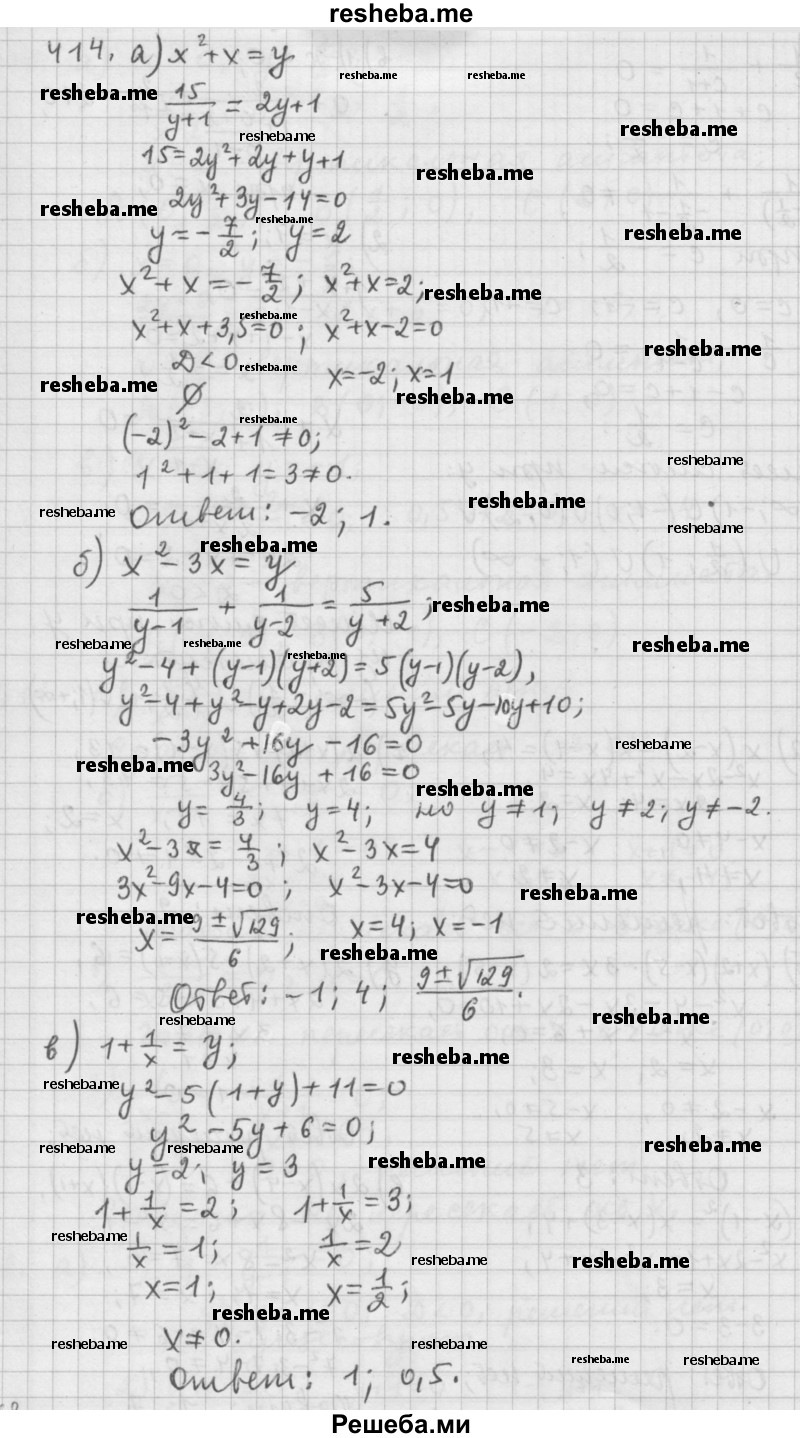 resheba.me
414. а) x²+x=y
resheba.me resheba.me
resheba.me 15/(y+1) = 2y+1
resheba.me resheba.me
15=2y²+2y+y+1
resheba.me
resheba.me 2y²+3y-14=0
resheba.me
y=-7/2; y=2 resheba.me
x²+x=-7/2; x²+x=2; resheba.me
resheba.me
x²+x+3,5=0; x²+x-2=0
resheba.me
D<0 resheba.me
resheba.me x=-2; x=1
∅ resheba.me
resheba.me
(-2)²-2+1≠0;
resheba.me
1²+1+1=3≠0.
resheba.me resheba.me
Ответ: -2; 1.
resheba.me
б) x²-3x=y resheba.me
1/(y-1) + 1/(y-2) = 5/(y+2); resheba.me
resheba.me resheba.me resheba.me
resheba.me
y²-4+(y-1)(y+2)=5(y-1)(y-2),
y²-4+y²-y+2y-2=5y²-5y-10y+10;
-3y²+16y-16=0 resheba.me
resheba.me 3y²-16y+16=0
resheba.me
y=4/3; y=4; но y≠1; y≠2; y≠-2.
x²-3x=4/3; x²-3x=4
3x²-9x-4=0; x²-3x-4=0 resheba.me
resheba.me
x=(9±√129)/6; x=4; x=-1
resheba.me
Ответ: -1; 4; (9±√129)/6.
resheba.me resheba.me
в) 1+1/x=y; resheba.me
resheba.me
y²-5(1+y)+11=0
y²-5y+6=0;
resheba.me resheba.me resheba.me
y=2; y=3 resheba.me
1+1/x=2; 1+1/x=3;
resheba.me
1/x=1; 1/x=2 resheba.me resheba.me
x=1; x=1/2;
resheba.me
resheba.me x≠0. resheba.me
resheba.me resheba.me
Ответ: 1; 0,5.
Решеба.ми